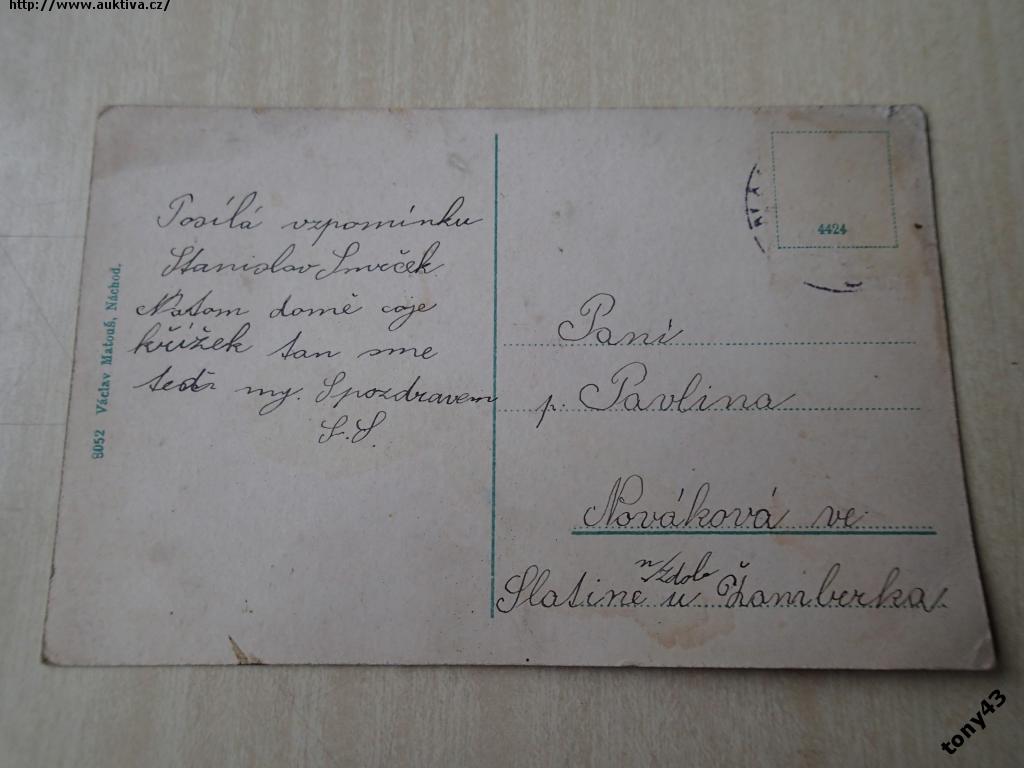 http://www.auktiva.cz/
Posílá vzpomínku
Stanislav Smrček
Natom domě coje
křížek tan sme
my. Spozdravem
S. S.
8052 Václav Matouš, Náchod.
4424
Paní
p. Pavlina
Nováková ve
n/Zdob
Slatine u Žamberka
tony43